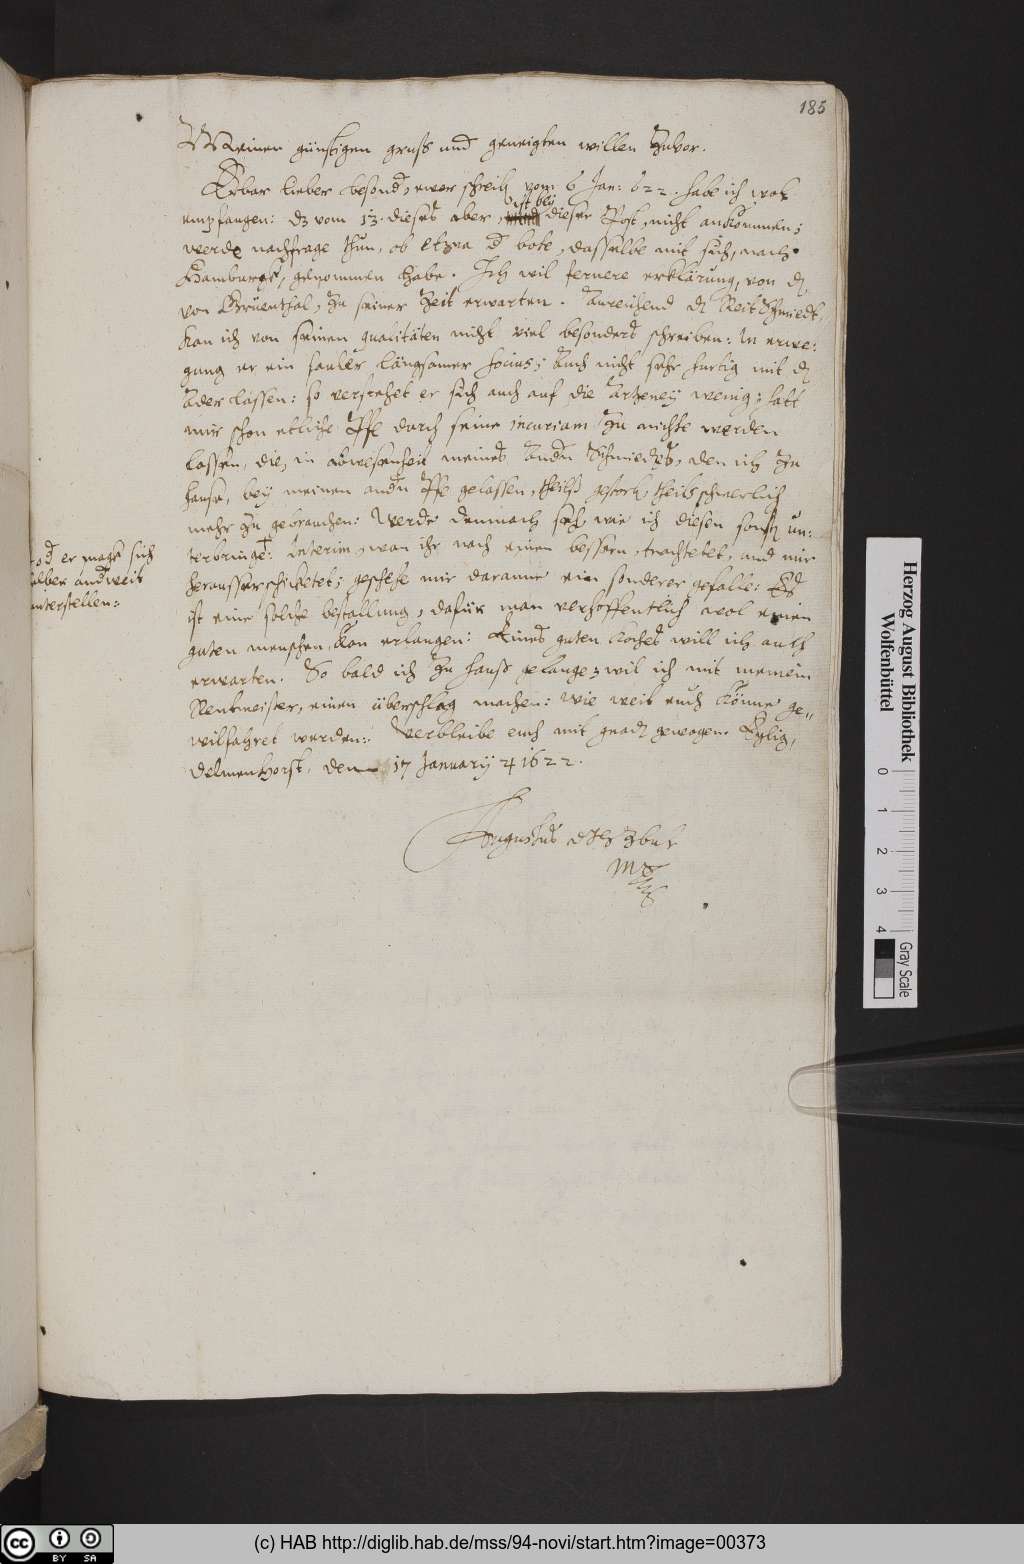 185
Meinen günstigen gruß und geneigten willen zuvor.
Erbar lieber besond., ewer schreib. vom 6 Jan: 622. habe ich wol
empfangen: dz vom 13. dieses aber, ist bey dieser Post, nicht ankommen;
werde nachfrage thun, ob etwa d. bote, dasselbe mit sich, nach
Hamburgk, genommen habe. Ich wil fernere erklärung, von d.
von Grüenthal, zu seiner Zeit erwarten. Anreichend d. Reitschmiedt,
kan ich von seinen qualitäten nicht viel besonders schreiben: in erwe:
gung er ein fauler längsamer socius; Auch nicht sehr furtig mit d.
Aderlassen: so verstehet er sich auch auf die Artzeney wenig; hatt
mir schon etliche Pfe durch seine incuriam zu nichte werden
lassen, die, in abwesenheit meines andn Schmiedes, den ich zu
hause, bey meinen andn Pfe gelassen, theilß gestorb, theils schwerlich
mehr zu gebrauchen: Werde demnach seh, wie ich diesen sonst un:
terbringe: Interim, wan ihr nach einen bessern, trachtetet, und mir
herausser schicktet; geschehe mir daranne ein sonderer gefalle: Es
ist eine solche bestallung, dafür man verhoffentlich wol einen
guten menschen, kan erlangen: Eines guten Koches will ich auch
erwarten. So bald ich zu hauß gelange; wil ich mit meinem
Rentmeister, einen überschlag machen: wie weit euch könne ge„
wilfahret werden: Verbleibe euch mit gnad. gewogen. Eylig,
Delmenhorst, den 17 January 1622.
od er mags sich
selber andweit
unterstellen:
Augustus
Herzog August Bibliothek
Wolfenbüttel
0 1 2 3 4
Gray Scale
cc BY SA
(c) HAB http://diglib.hab.de/mss/94-novi/start.htm?image=00373